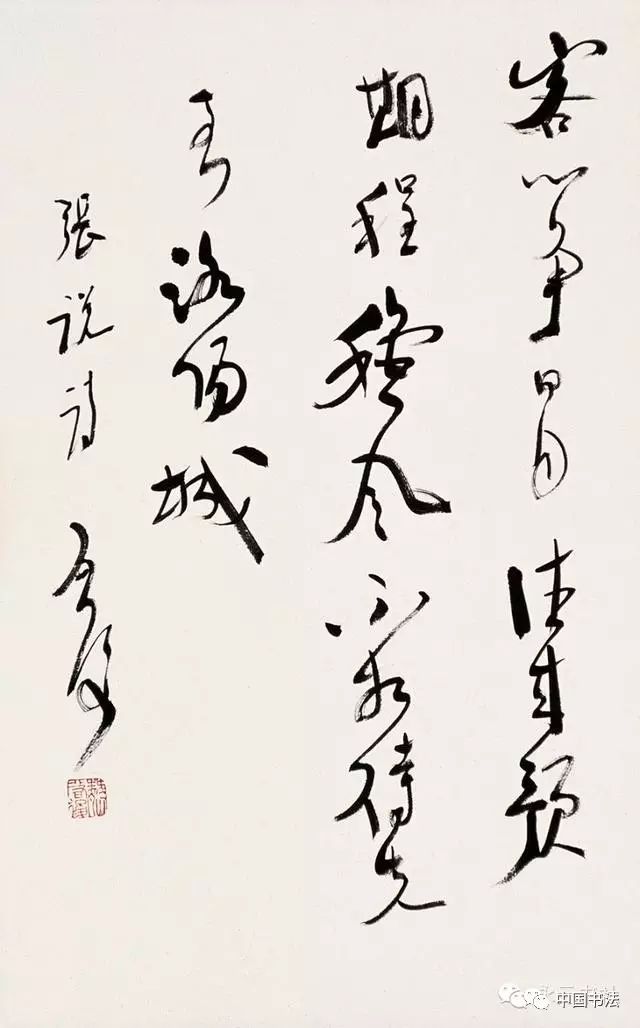 客心争日月往来预
期程穐风不相待先
至洛阳城
張说诗 启后
中国书法